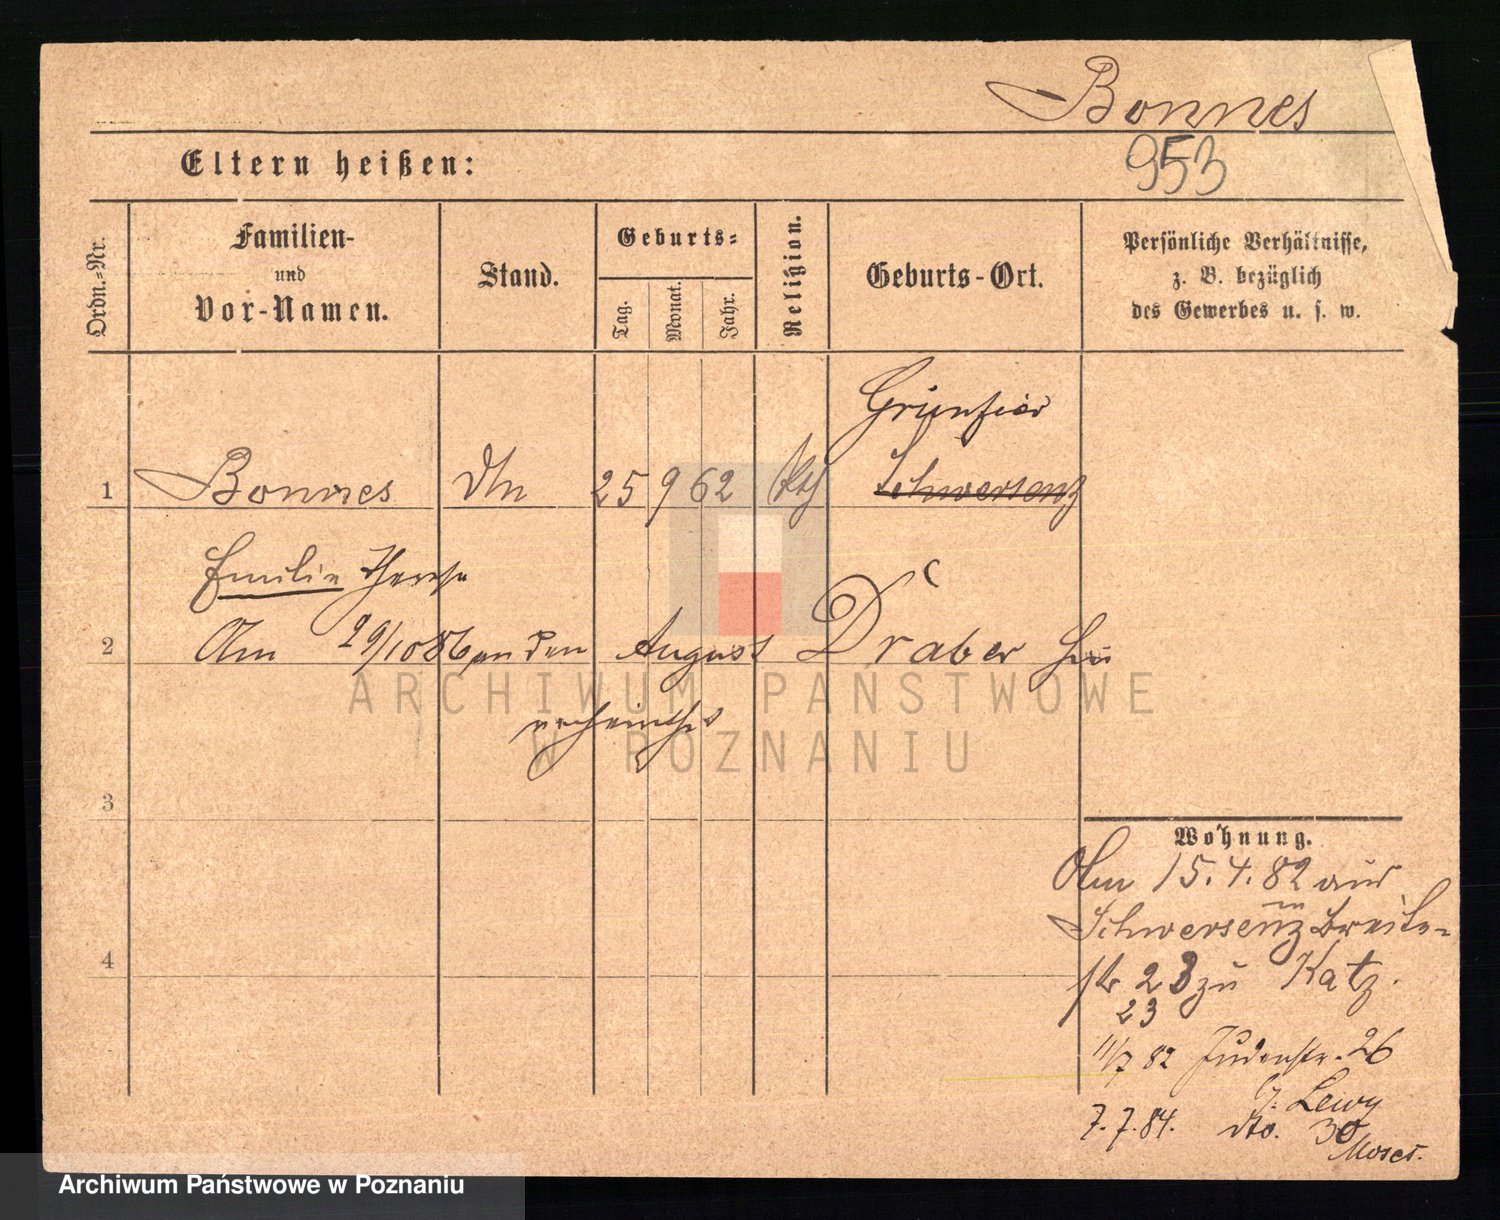 Bonnes
Eltern heißen:
953
Ordn.-Nr.
Familien-
und
Vor-Namen.
Stand.
Geburts-
Tag.
Monat.
Jahr.
Religion.
Geburts-Ort.
Persönliche Verhältnisse,
z. B. bezüglich
des Gewerbes u. s. w.
1
Bonnes
25 9 62
Kth
Schwersenz
Emilie Therese
2
Am 29/10 86 an den August Draber hier
verheirathet
ARCHIWUM PAŃSTWOWE
W POZNANIU
3
4
Wohnung.
Am 15.4.82 aus
Schwersenz Breite-
str 23 zu Katz.
23
11/7 82 Judenstr. 26
b. Lewy
7.7.84. dto. 30
Moses.
Archiwum Państwowe w Poznaniu